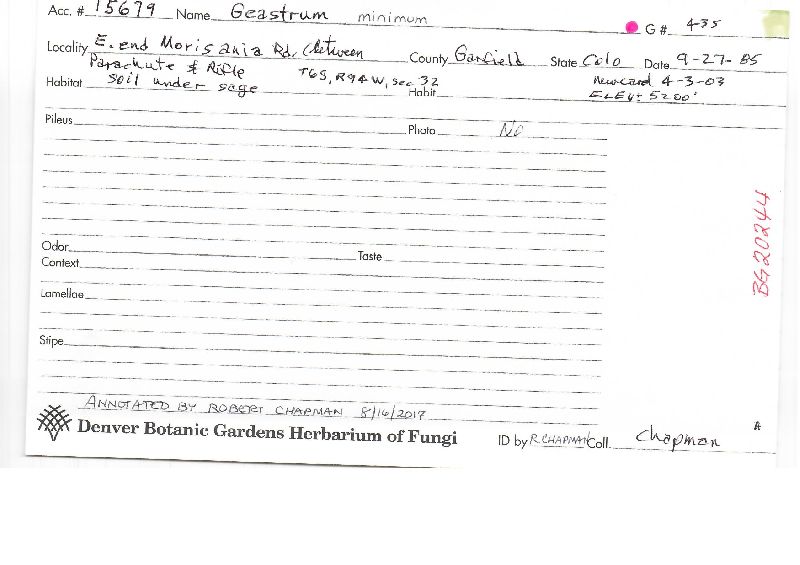 Acc. # 15679 Name Geastrum minimum G# 435
Locality E. end Morisania Rd. (between County Garfield State Colo Date 9-27-85
Parachute & Rifle T6S, R94W, sec 32 New card 4-3-03
Habitat soil under sage Habit ELEV: 5200'
Pileus Photo No
Odor Taste
Context
Lamellae
Stipe
ANNOTATED BY ROBERT CHAPMAN 8/16/2017
Denver Botanic Gardens Herbarium of Fungi ID by R. CHAPMAN Coll. Chapman
A
BG20244